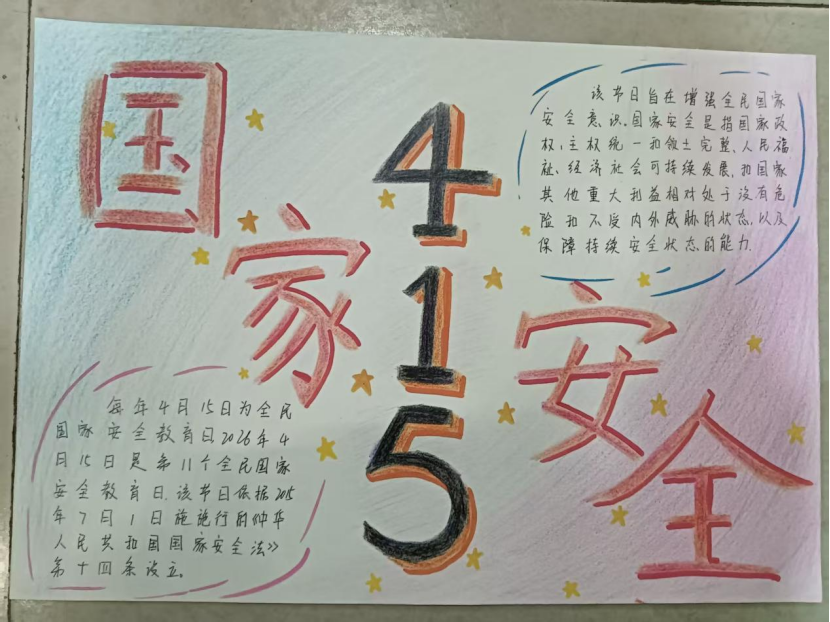 国家安全
4
1
5
该节日旨在增强全民国家
安全意识。国家安全是指国家政
权、主权统一和领土完整、人民福
祉、经济社会可持续发展,和国家
其他重大利益相对处于没有危
险和不受内外威胁的状态,以及
保障持续安全状态的能力.
每年4月15日为全民
国家安全教育日2026年4
月15日是第11个全民国家
安全教育日.该节日依据2015
年7月1日施施行的
人民共和国国家安全法》
第十四条设立。